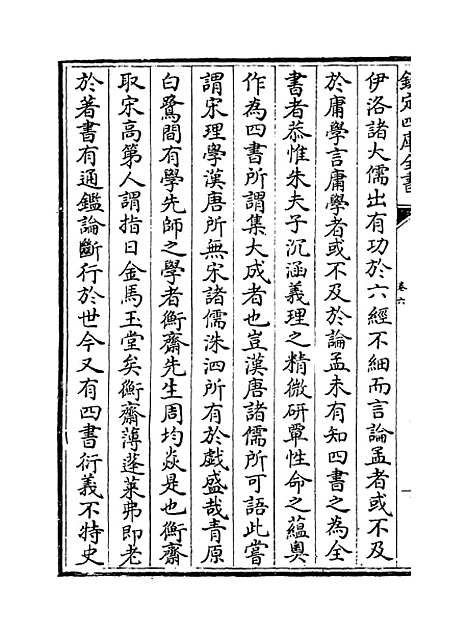 欽定四庫全書
卷六
伊洛諸大儒出有功於六經不細而言論孟者或不及
於庸學言庸學者或不及於論孟未有知四書之為全
書者恭惟朱夫子沉涵義理之精微研覃性命之蘊奥
作為四書所謂集大成者也豈漢唐諸儒所可語此嘗
謂宋理學漢唐所無宋諸儒洙泗所有於戲盛哉青原
白鷺間有學先師之學者衡齋先生周均焱是也衡齋
取宋高第人謂指日金馬玉堂矣衡齋薄蓬萊弗即老
於著書有通鑑論斷行於世今又有四書衍義不特史